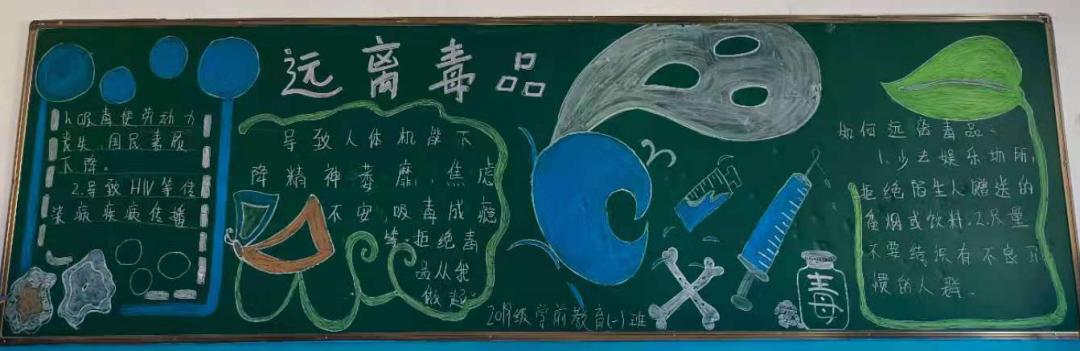 远离毒品
1.吸毒使劳动力
丧失,国民素质
下降。
2.导致HIV等传
染病疾病传播
导致人体机能下
降精神萎靡,焦虑
不安,吸毒成瘾
等,拒绝毒
品从我
做起
级学前教育(一)班
毒
如何远离毒品。
1.少去娱乐场所,
拒绝陌生人赠送的
香烟或饮料.2.尽量
不要结识有不良习
惯的人群.